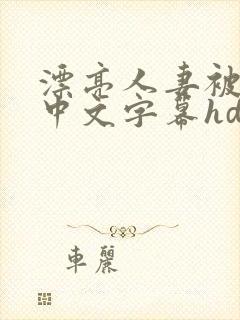 漂亮人妻被
中文字幕hd
车丽